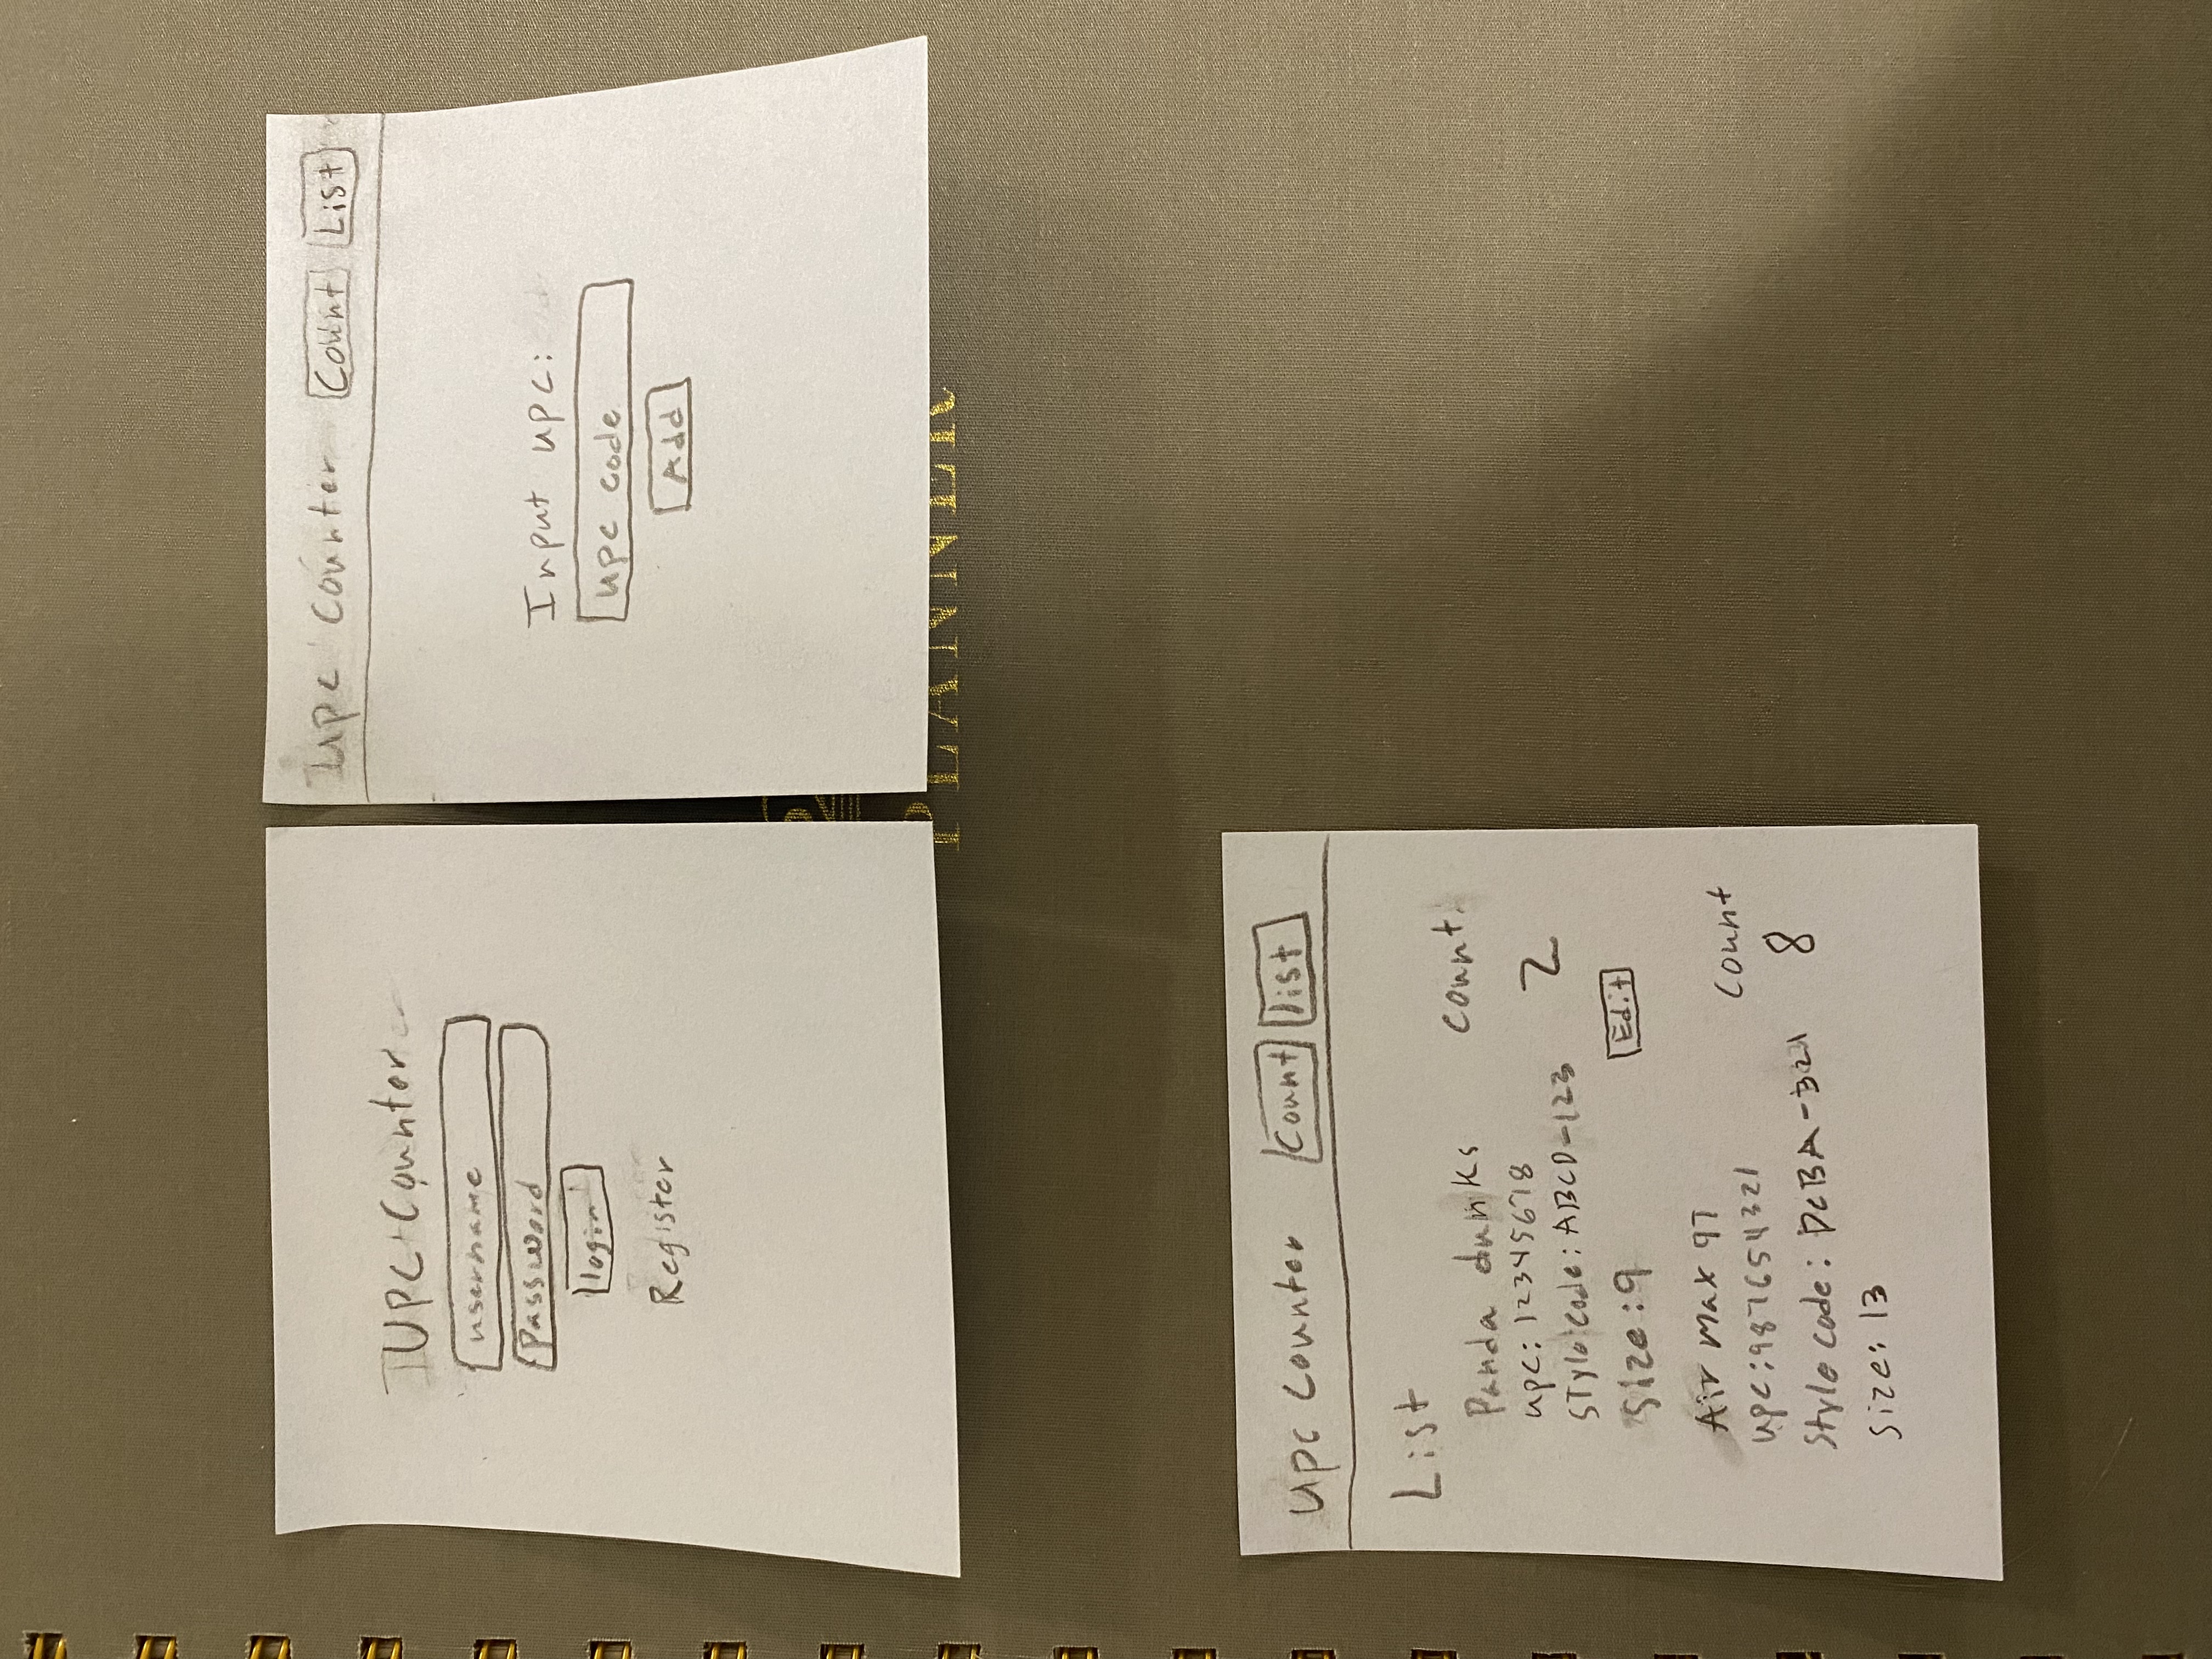 UPC Counter
username
Password
login
Register
Upc Counter Count List
Input upc:
upc code
Add
PLANNER
Upc Counter Count list
List
Panda dunks count
upc: 12345678
STyle code: ABCD-123 2
Size: 9 Edit
Air Max 97
upc: 987654321 Count
Style code: DCBA-321 8
Size: 13